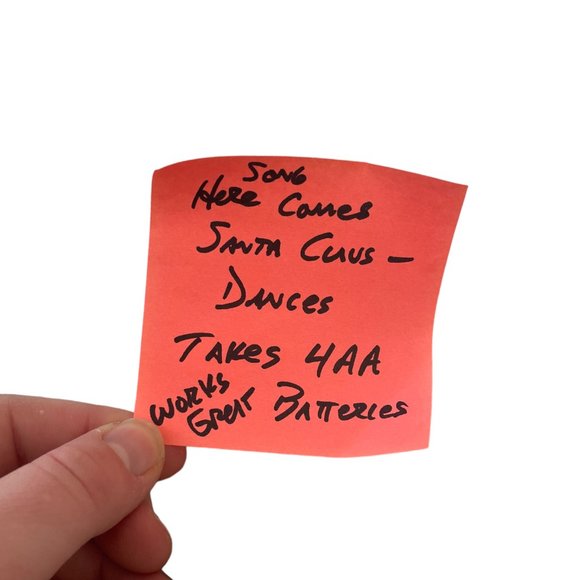 Song
Here Comes
Santa Claus –
Dances
Takes 4AA
Works
Great Batteries